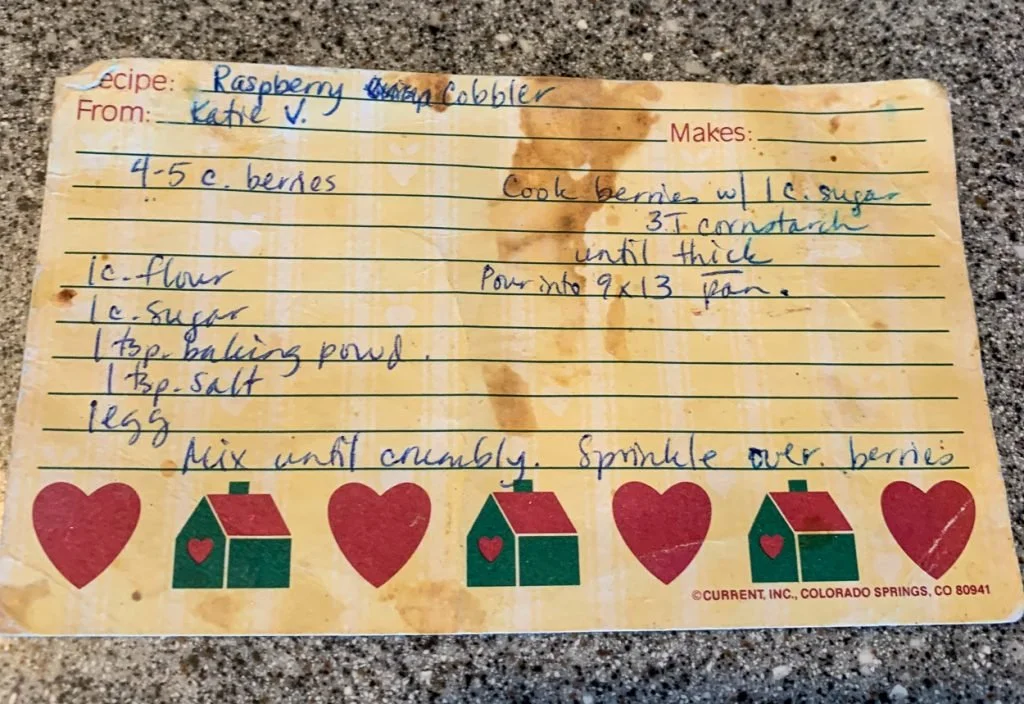 ecipe: Raspberry Cobbler
From: Katie V.
Makes:
4-5 c. berries
Cook berries w/ 1 c. sugar
3T cornstarch
until thick
Pour into 9x13 pan.
1c. flour
1c. sugar
1 tsp. baking powd.
1 tsp. salt
1 egg
Mix until crumbly. Sprinkle over berries
©CURRENT, INC., COLORADO SPRINGS, CO 80941